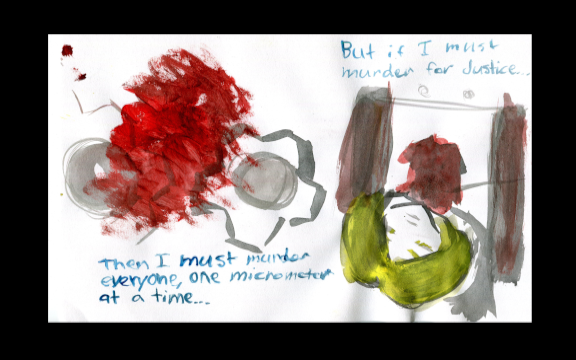 But if I must
murder for Justice...
Then I must murder
everyone, one micrometer
at a time...